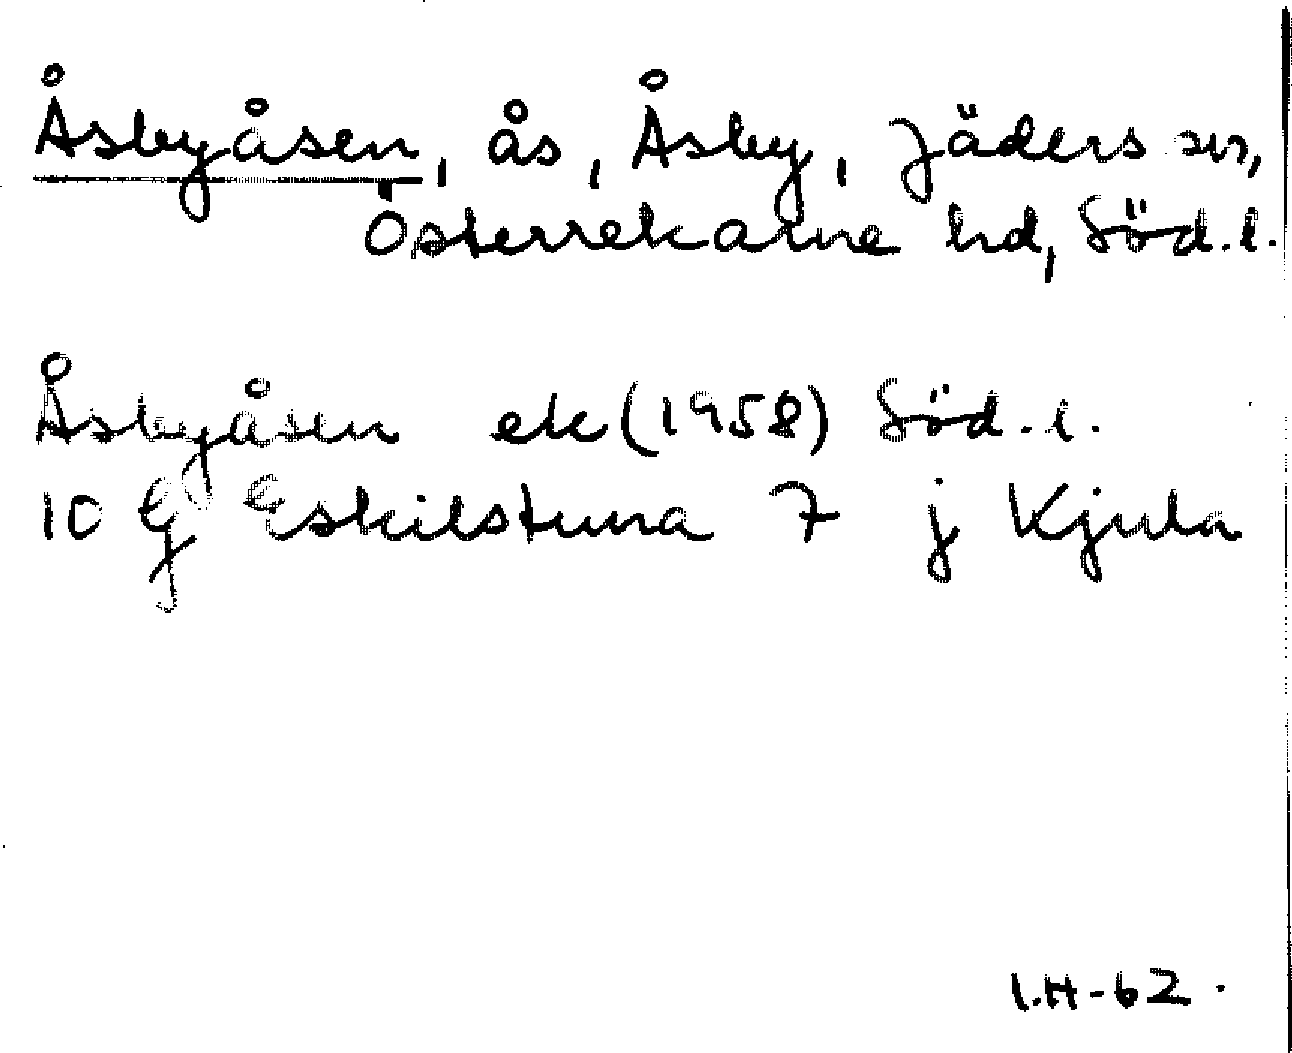 Åsbyåsen, ås, Åsby, Jäders sn,
Österrekarne hd, Söd.l.
Åsbyåsen ek (1958) Söd.l.
10 G Eskilstuna 7 j Kjula
I.H-62.